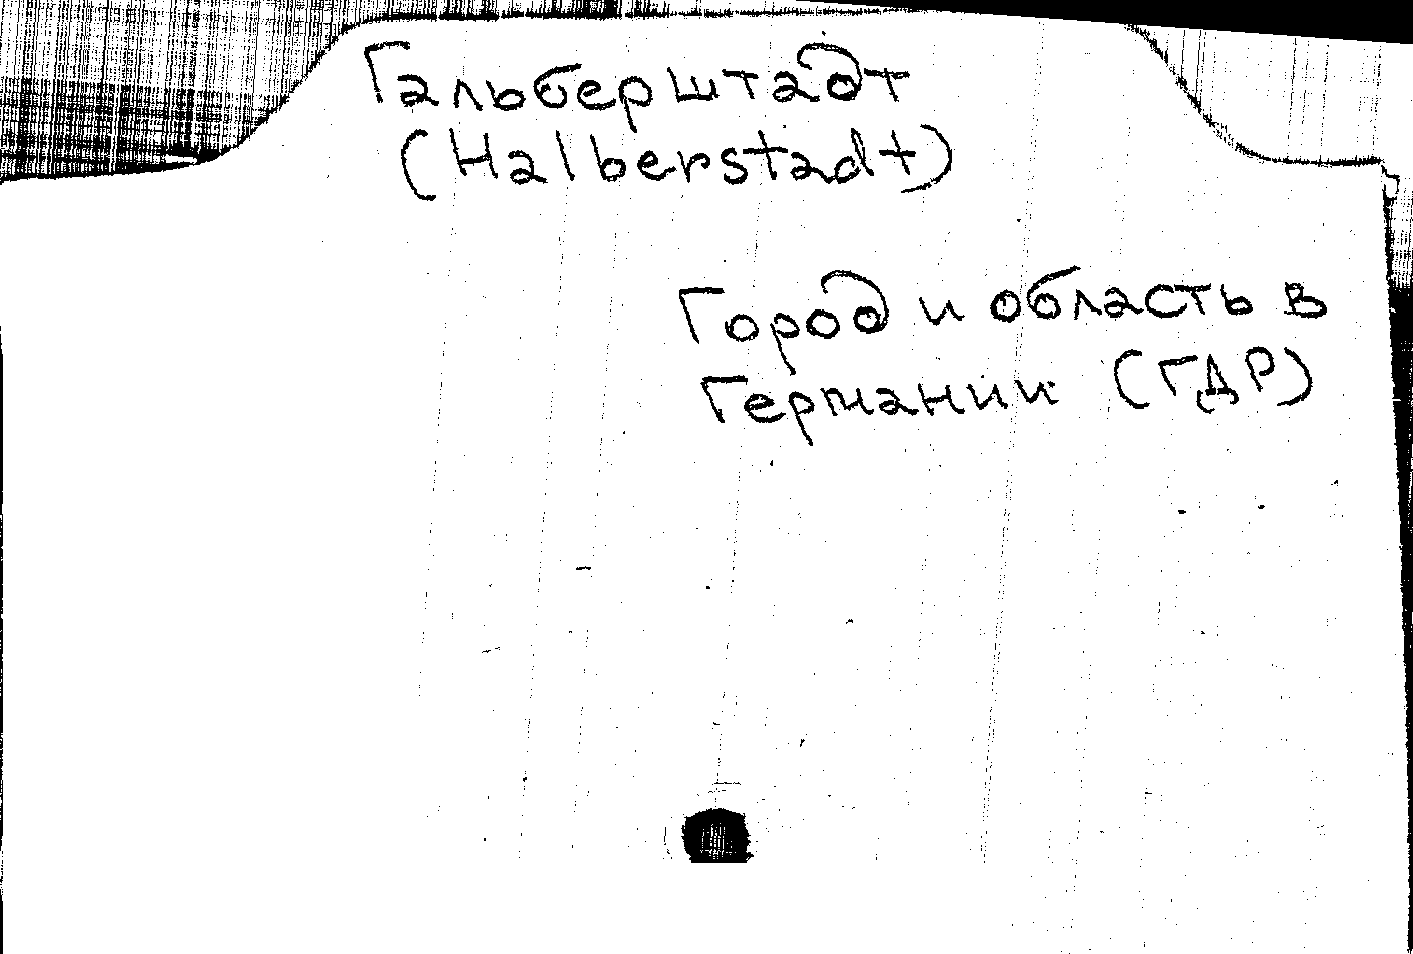 Гальберштадт
(Halberstadt)
Город и область в
Германии (ГДР)